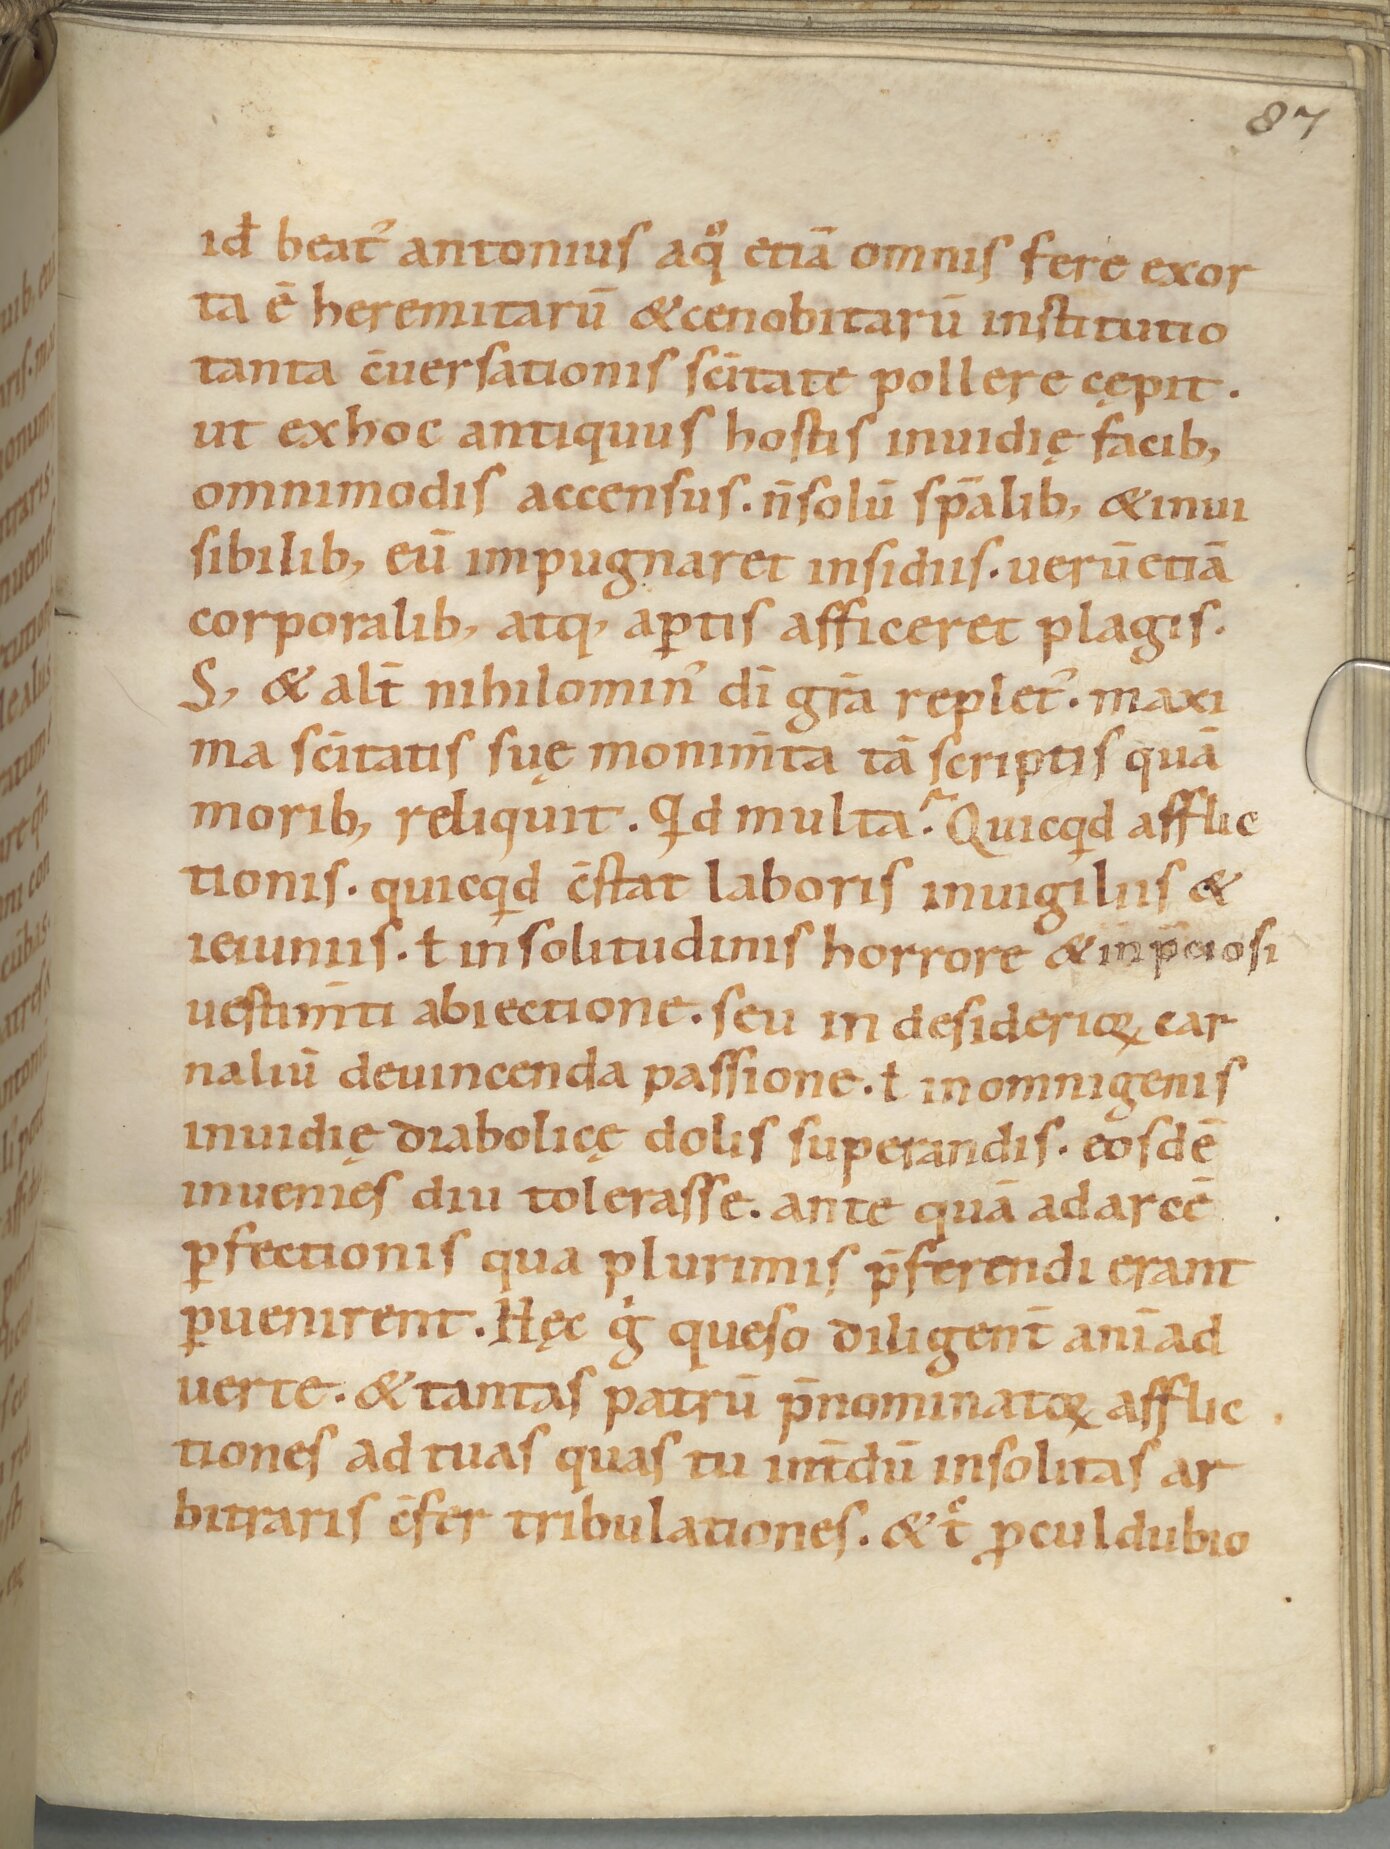 87
id̄ beat᾽ antonius aq̊ etiā omnis fere exor
ta ē heremitarū & cenobitarū institutio
tanta c̄uersationis sc̄itate pollere cępit.
ut ex hoc antiquus hostis inuidię facib;
omnimodis accensus. n̄ solū sp̄alib; & inui
sibilib; eū impugnaret insidiis. uerū etiā
corporalib; atq; aꝑtis afficeret plagis.
S; & alt̄ nihilomin᾽ dī gr̄a replet᾽. maxi
ma sc̄itatis suę monim̄ta tā scriptis quā
morib; reliquit. Qd multa? Quicqd afflic
tionis. quicqd c̄stat laboris in uigiliis &
ieiuniis. ł in solitudinis horrore & in p̄ciosi
uestim̄ti abiectione. seu in desiderioꝝ car
naliū deuincenda passione. ł in omnigenis
inuidię diabolicę dolis superandis. eosdē
inuenies diu tolerasse. ante quā ad arcē
ꝑfectionis qua plurimis p̄ferendi erant
ꝑuenirent. Hęc g̊ queso diligent̄ anīad
uerte. & tantas patrū p̄nominatoꝝ afflic
tiones ad tuas quas tu int̄dū insolitas ar
bitraris c̄fer tribulationes. & t̄ ꝓcul dubio